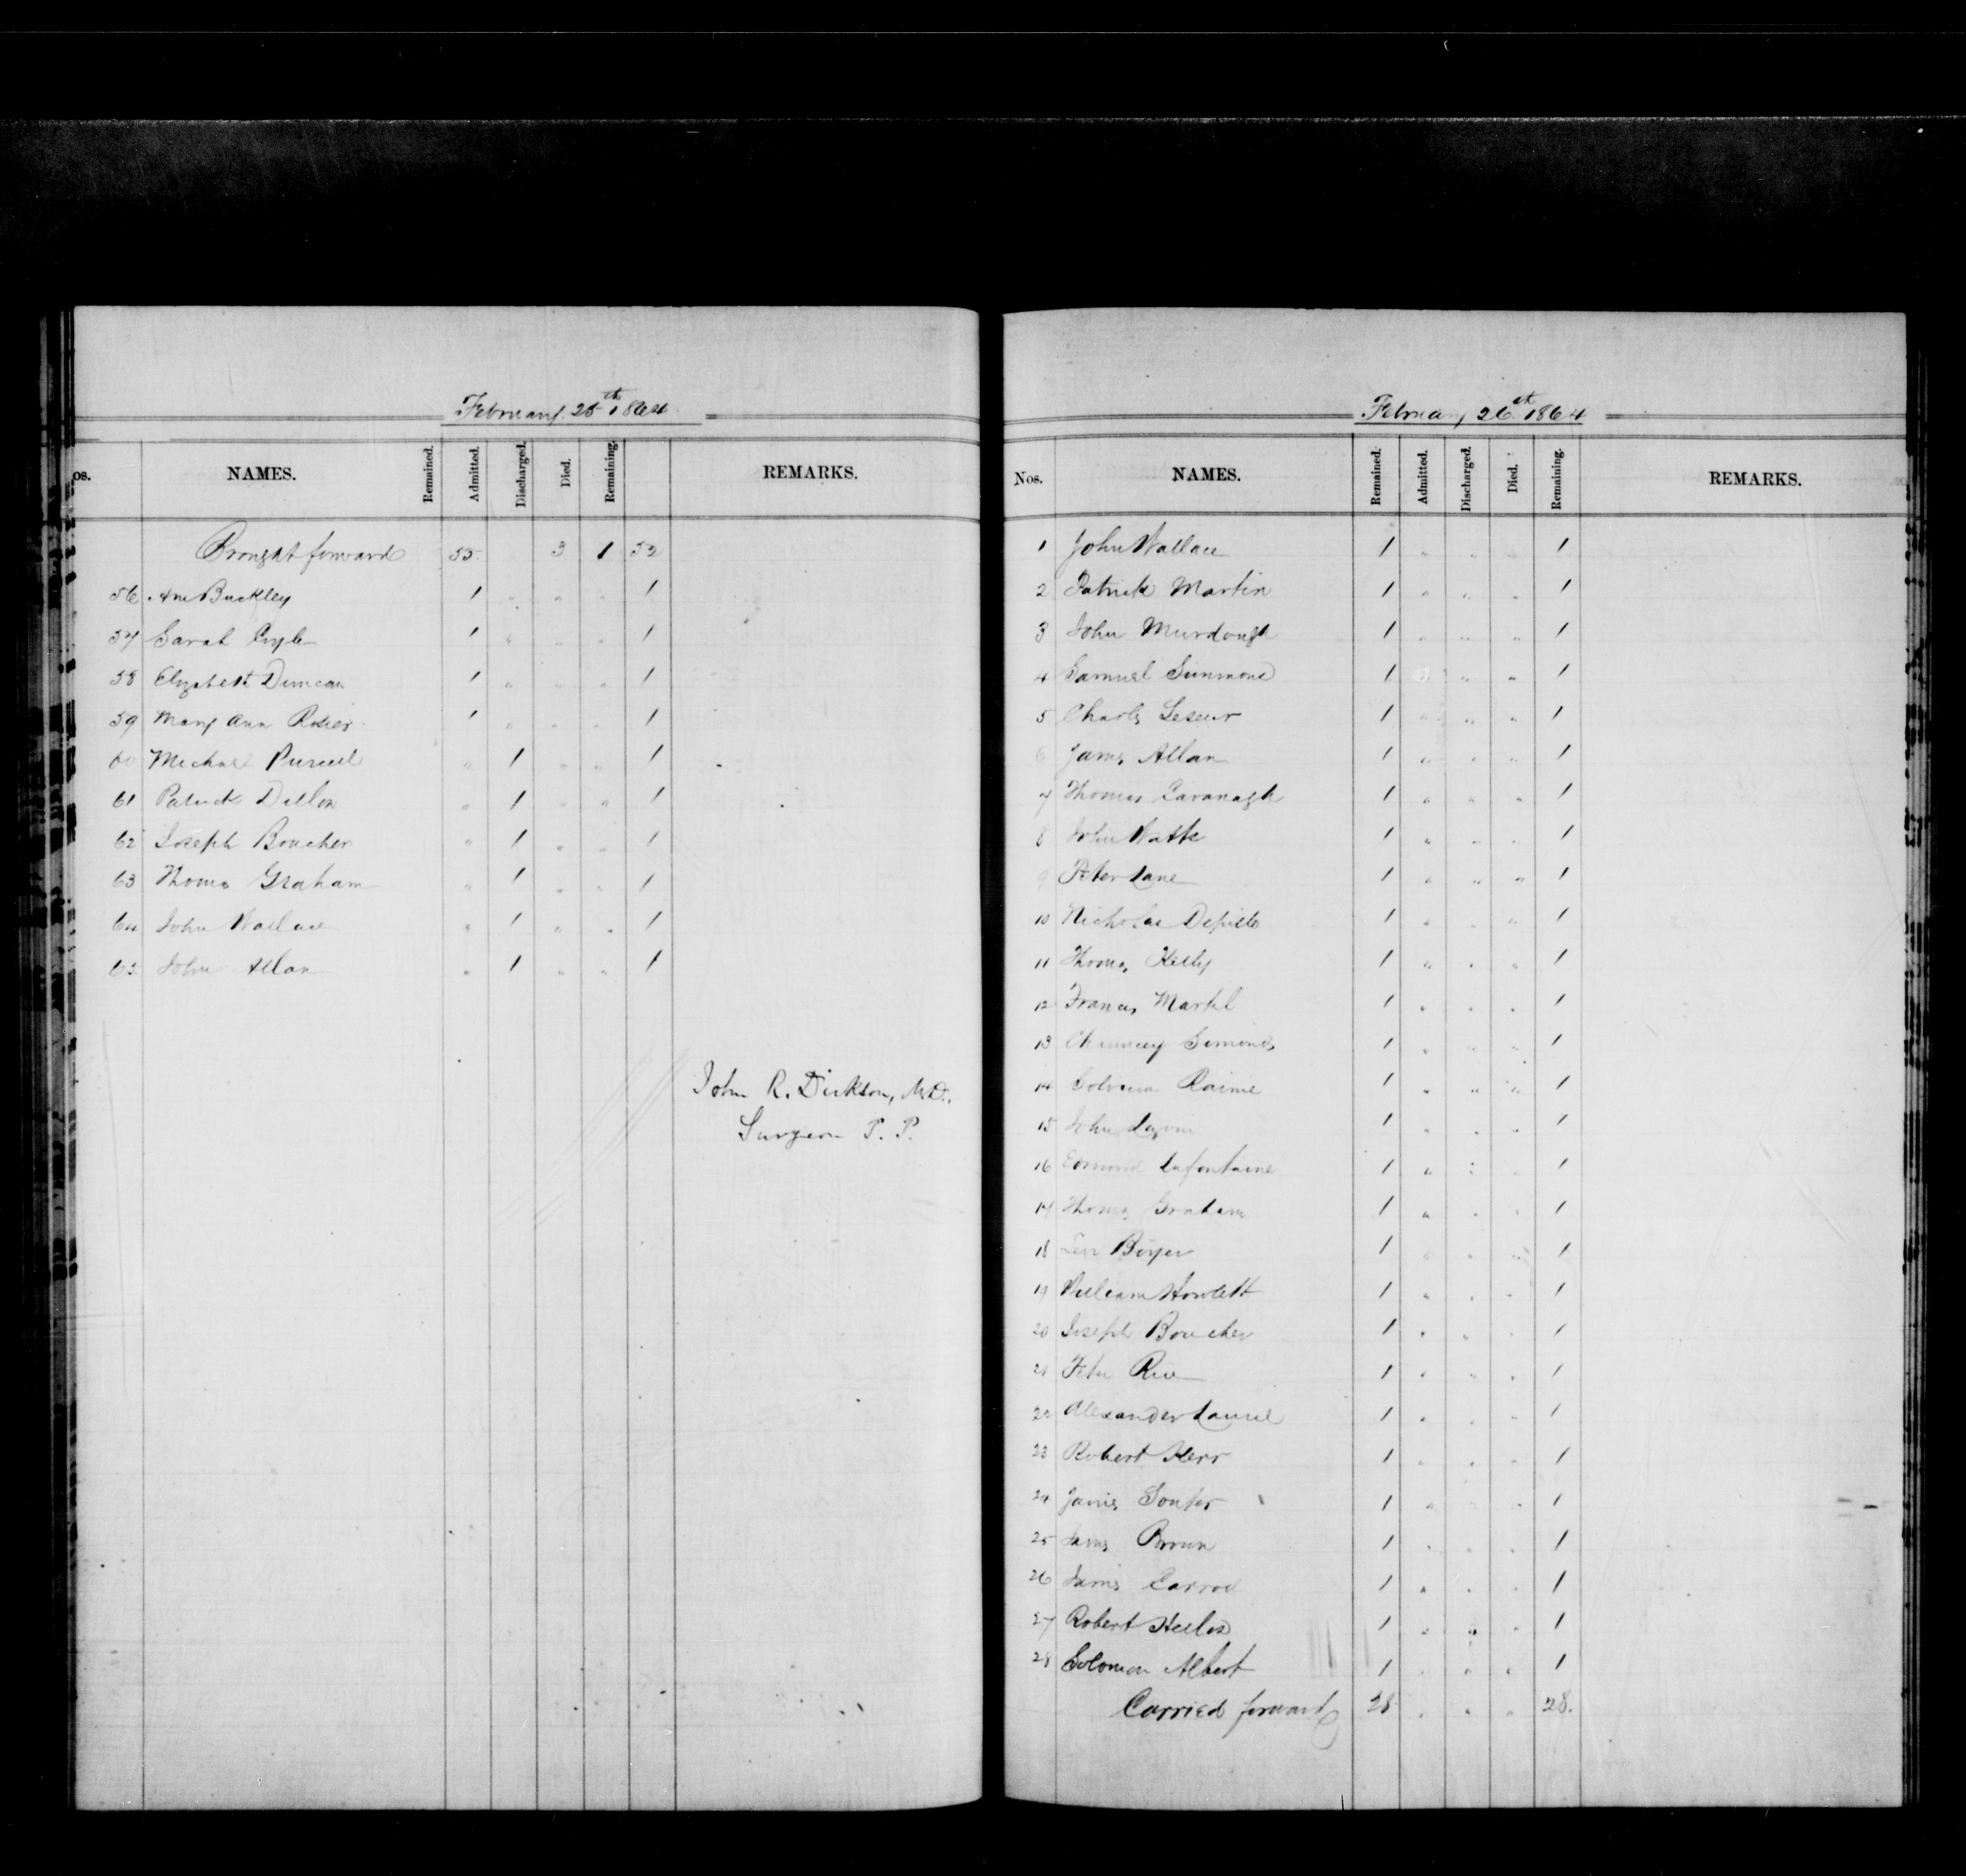 February 25th 1864
os. NAMES. Remained. Admitted. Discharged. Died. Remaining. REMARKS.
Brought forward 55 3 1 52
56 Ann Buckley 1 " " " 1
57 Sarah 1 " " " 1
58 Elizabeth Duncan 1 " " " 1
59 Mary Ann 1 " " " 1
60 Michael Purcell " 1 " " 1
61 Patrick Dillon " 1 " " 1
62 Joseph Boucher " 1 " " 1
63 Thomas Graham " 1 " " 1
64 John Wallace " 1 " " 1
65 John Allan " 1 " " 1
John R. Dickson, M.D.,
Surgeon P. P.
February 26th 1864
Nos. NAMES. Remained. Admitted. Discharged. Died. Remaining. REMARKS.
1 John Wallace 1 " " " 1
2 Patrick Martin 1 " " " 1
3 John Murdough 1 " " " 1
4 Samuel Simmond 1 " " " 1
5 Charles Leseur 1 " " " 1
6 James Allan 1 " " " 1
7 Thomas Cavanagh 1 " " " 1
8 John Watts 1 " " " 1
9 Peter Lane 1 " " " 1
10 Nicholas 1 " " " 1
11 Thomas Kelly 1 " " " 1
12 Francis Martel 1 " " " 1
13 Chauncey Simonds 1 " " " 1
14 Raime 1 " " " 1
15 John 1 " " " 1
16 Edmond Lafontaine 1 " " " 1
17 Thomas Graham 1 " " " 1
18 Levi Boyer 1 " " " 1
19 William Howlett 1 " " " 1
20 Joseph Boucher 1 " " " 1
21 Peter Rice 1 " " " 1
22 Alexander Laurie 1 " " " 1
23 Robert Kerr 1 " " " 1
24 James Souter 1 " " " 1
25 James Brown 1 " " " 1
26 James Carrol 1 " " " 1
27 Robert 1 " " " 1
28 Solomon Albert 1 " " " 1
Carried forward 28 " " " 28.